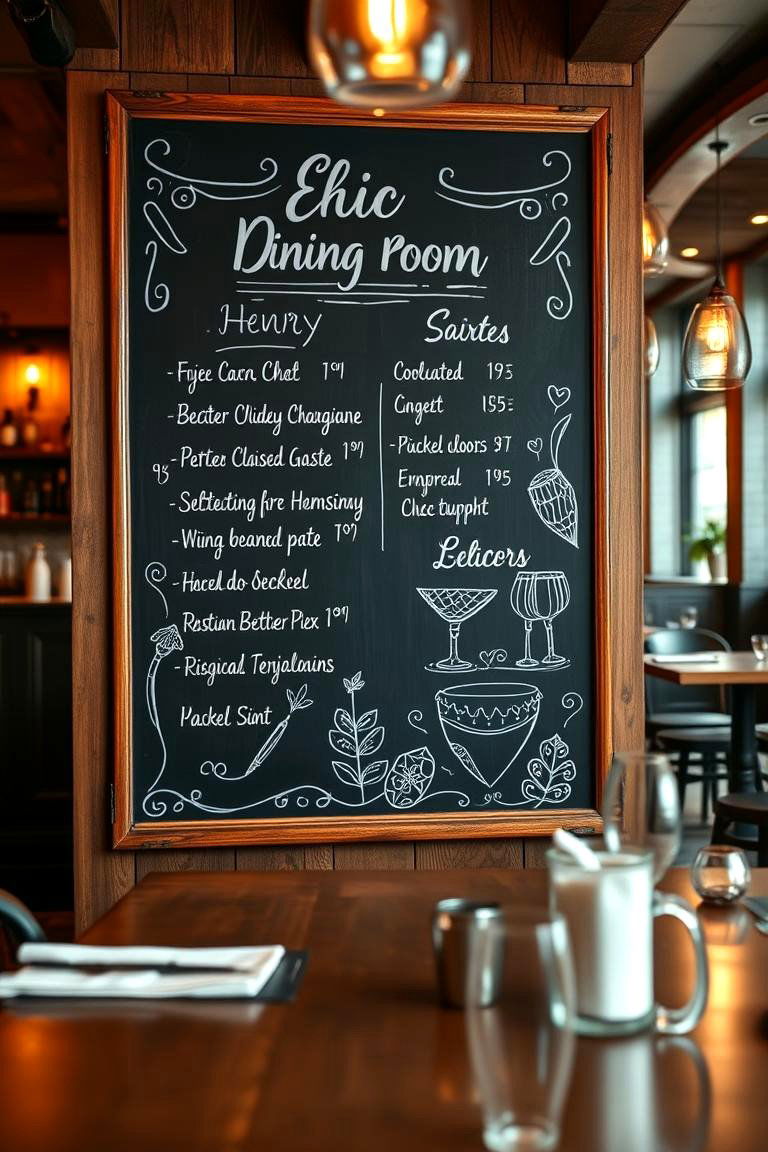 Ehic
Dining Room
Henry
- Fryee Carn Chat 19
- Becter Clidey Chargiane
- Perter Claised Gaste 19
- Seltecting fre Hemsinay
- Wiing beancd pate 19
- Hacel do Seckeel
Rastian Better Piex 19
- Risgical Terjaloains
Mackel Sint
Sairtes
Cooluated 193
Cingett 155
- Pückel doors 97
Empreal 195
Chcc tuppht
Lelicors